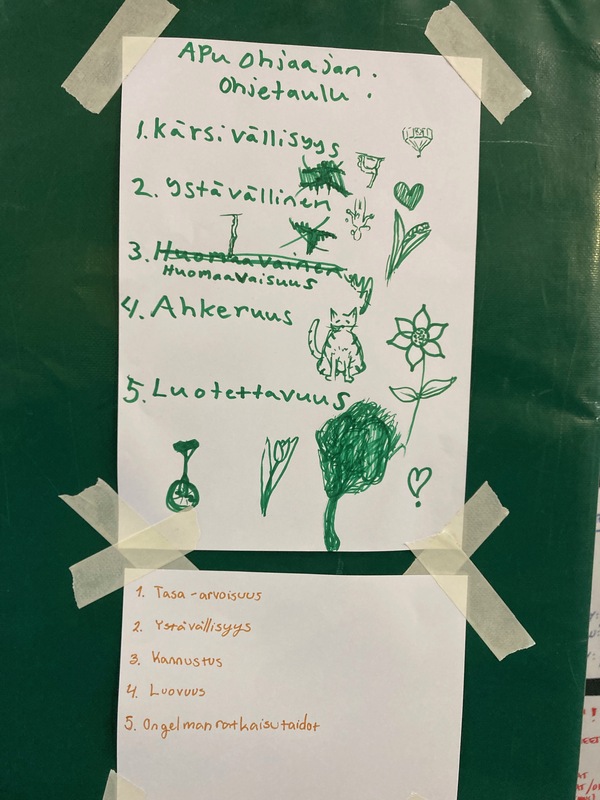 Apu ohjaajan.
Ohjetaulu.
1. Kärsivällisyys
2. Ystävällinen
3. Huomaavainen
Huomaavaisuus
4. Ahkeruus
5. Luotettavuus
1. Tasa-arvoisuus
2. Ystävällisyys
3. Kannustus
4. Luovuus
5. Ongelmanratkaisutaidot